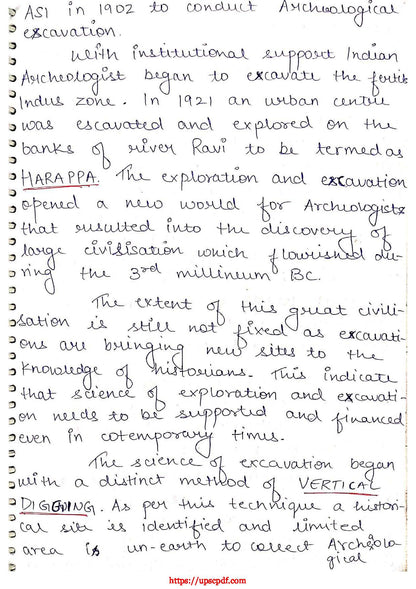 ASI in 1902 to conduct Archeological
escavation.
With institutional support Indian
Archeologist began to excavate the fertile
Indus zone. In 1921 an urban centre
was escavated and explored on the
banks of river Ravi to be termed as
HARAPPA. The exploration and excavation
opened a new world for Archeologists
that resulted into the discovery of
large civilisation which flourished du-
ring the 3rd millineum BC.
The extent of this great civili-
sation is still not fixed as excavati-
ons are bringing new sites to the
knowledge of historians. This indicate
that science of exploration and excavati-
on needs to be supported and financed
even in cotemporary times.
The science of excavation began
with a distinct method of VERTICAL
DIGGING. As per this technique a histori-
cal site is identified and limited
area is un-earth to collect Archeolo
gical
https://upscpdf.com